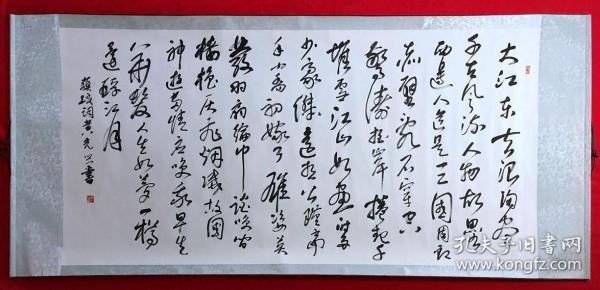 大江东去浪淘尽
千古风流人物故垒
西边人道是三國周郎
赤壁乱石穿空
惊涛拍岸捲起千
堆雪江山如画一时多
少豪傑遥想公瑾当
年小乔初嫁了雄姿英
發羽扇纶巾谈笑间
樯橹灰飞烟灭故國
神游多情应笑我早生
华髮人生如梦一樽
还酹江月
蘇轼词 书
孔夫子旧书网
www.kongfz.com